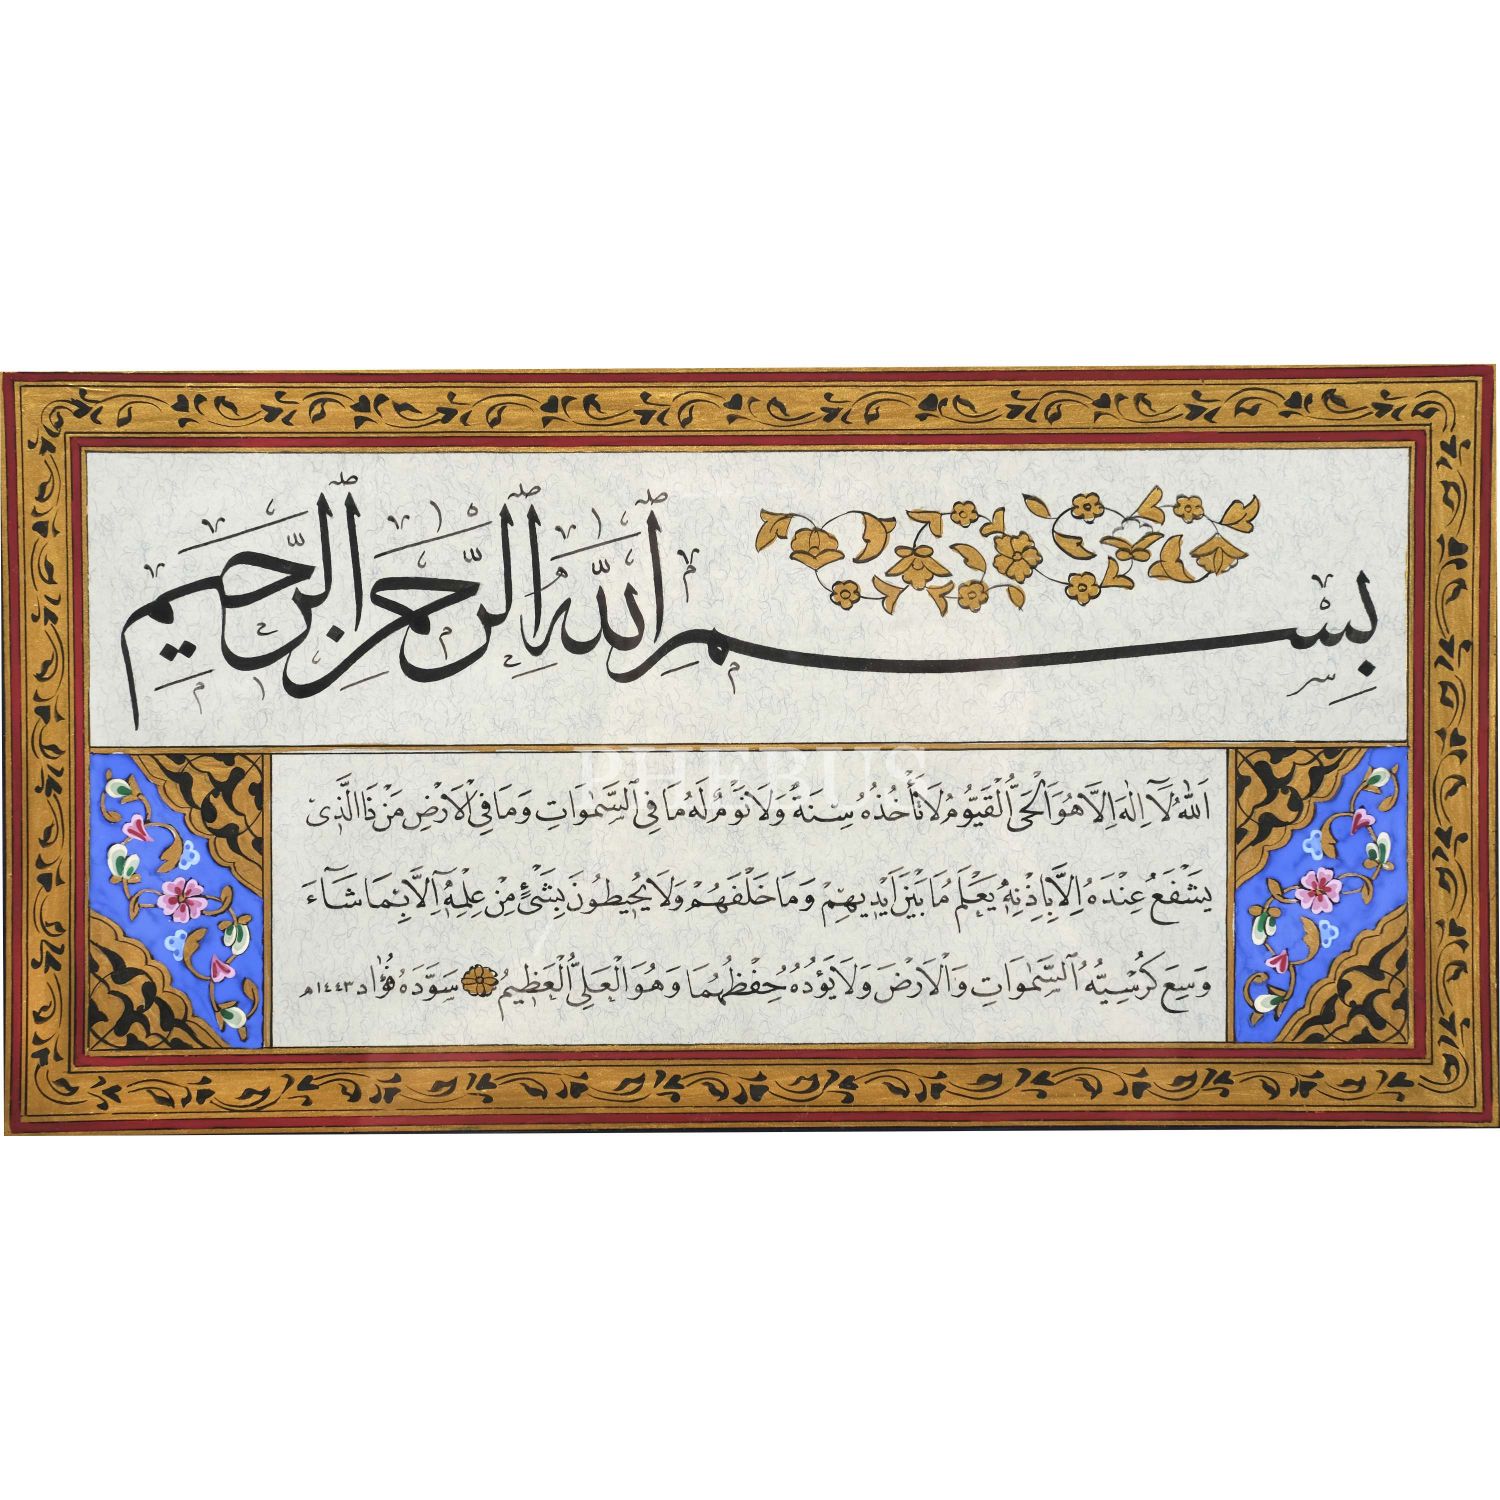 بِسْمِ اللّٰهِ الرَّحْمٰنِ الرَّحِيمِ
PHEBUS
اَللّٰهُ لَٓا اِلٰهَ اِلَّا هُوَ اَلْحَىُّ الْقَيُّومُ لَا تَأْخُذُهُ سِنَةٌ وَلَا نَوْمٌ لَهُ مَا فِى السَّمٰوَاتِ وَمَا فِى الْاَرْضِ مَنْ ذَا الَّذِى
يَشْفَعُ عِنْدَهُ اِلَّا بِاِذْنِهِ يَعْلَمُ مَا بَيْنَ اَيْدِيهِمْ وَمَا خَلْفَهُمْ وَلَا يُحِيطُونَ بِشَىْءٍ مِنْ عِلْمِهِ اِلَّا بِمَا شَٓاءَ
وَسِعَ كُرْسِيُّهُ السَّمٰوَاتِ وَالْاَرْضَ وَلَا يَؤُدُهُ حِفْظُهُمَا وَهُوَ الْعَلِىُّ الْعَظِيمُ سَوَّدَهُ فُؤَاد ١٤٤٣هـ